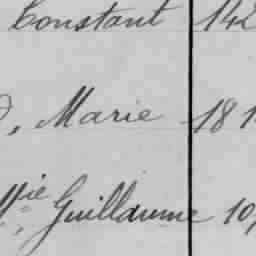 Constant 142
, Marie 181
Guillaume 10,